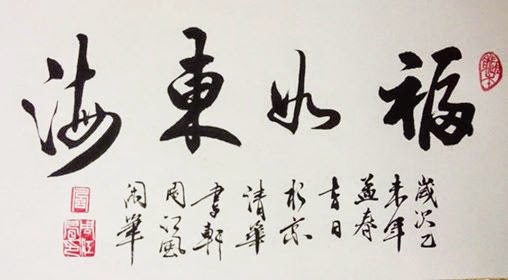 福如東海
歲次乙
未年
孟春
吉日
於京
清華
書軒
周江風